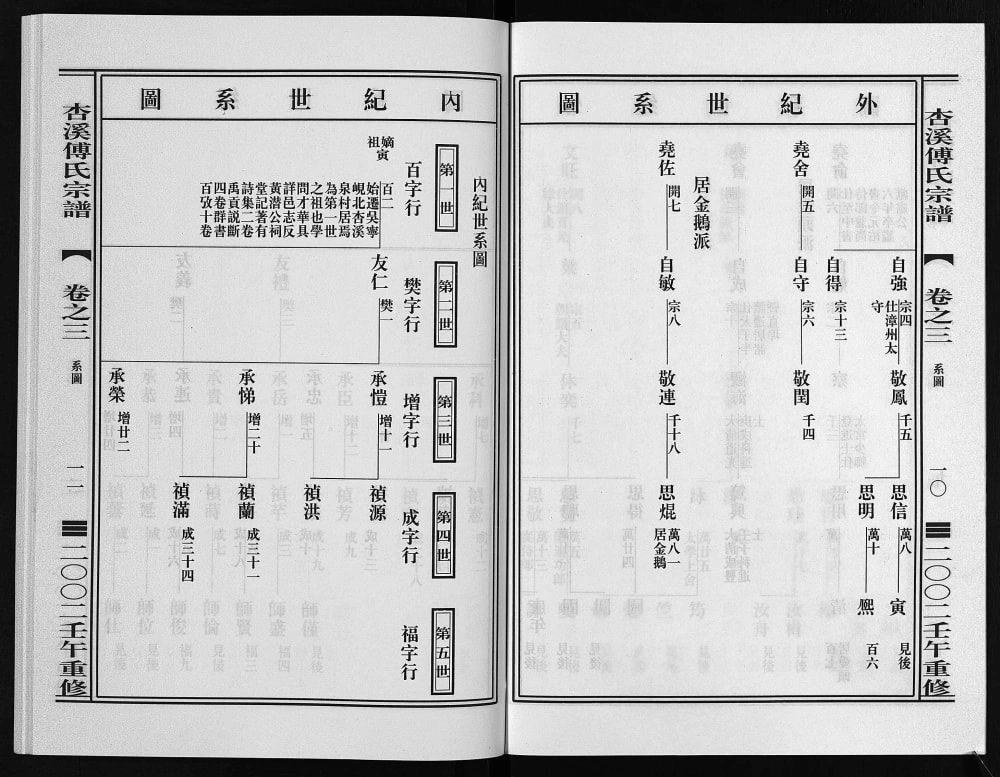 杏溪傅氏宗譜
【卷之三
系圖
一〇
二〇〇二壬午重修
外紀世系圖
自強
宗四
仕漳州太
守
敬鳳
千五
思信
萬八
寅
見後
思明
萬十
熈
百六
自得
宗十三
堯舍
開五
自守
宗六
敬閏
千四
居金鵝派
堯佐
開七
自敏
宗八
敬連
千十八
思焜
萬八一
居金鵝
內紀世系圖
內紀世系圖
第一世
第二世
第三世
第四世
第五世
百字行
樊字行
增字行
成字行
福字行
嫡寅
祖
百二
始遷吳寧
峴北杏溪
泉村居焉
為第一世
之祖也學
問才華具
詳邑志反
黃潛公祠
堂記著有
詩集二卷
禹貢說斷
四卷群書
百攷十卷
友仁
樊一
承愷
增十一
禎源
禎洪
承悌
增二十
禎蘭
成三十一
禎滿
成三十四
承榮
增廿二
杏溪傅氏宗譜
【卷之三
系圖
一一
二〇〇二壬午重修